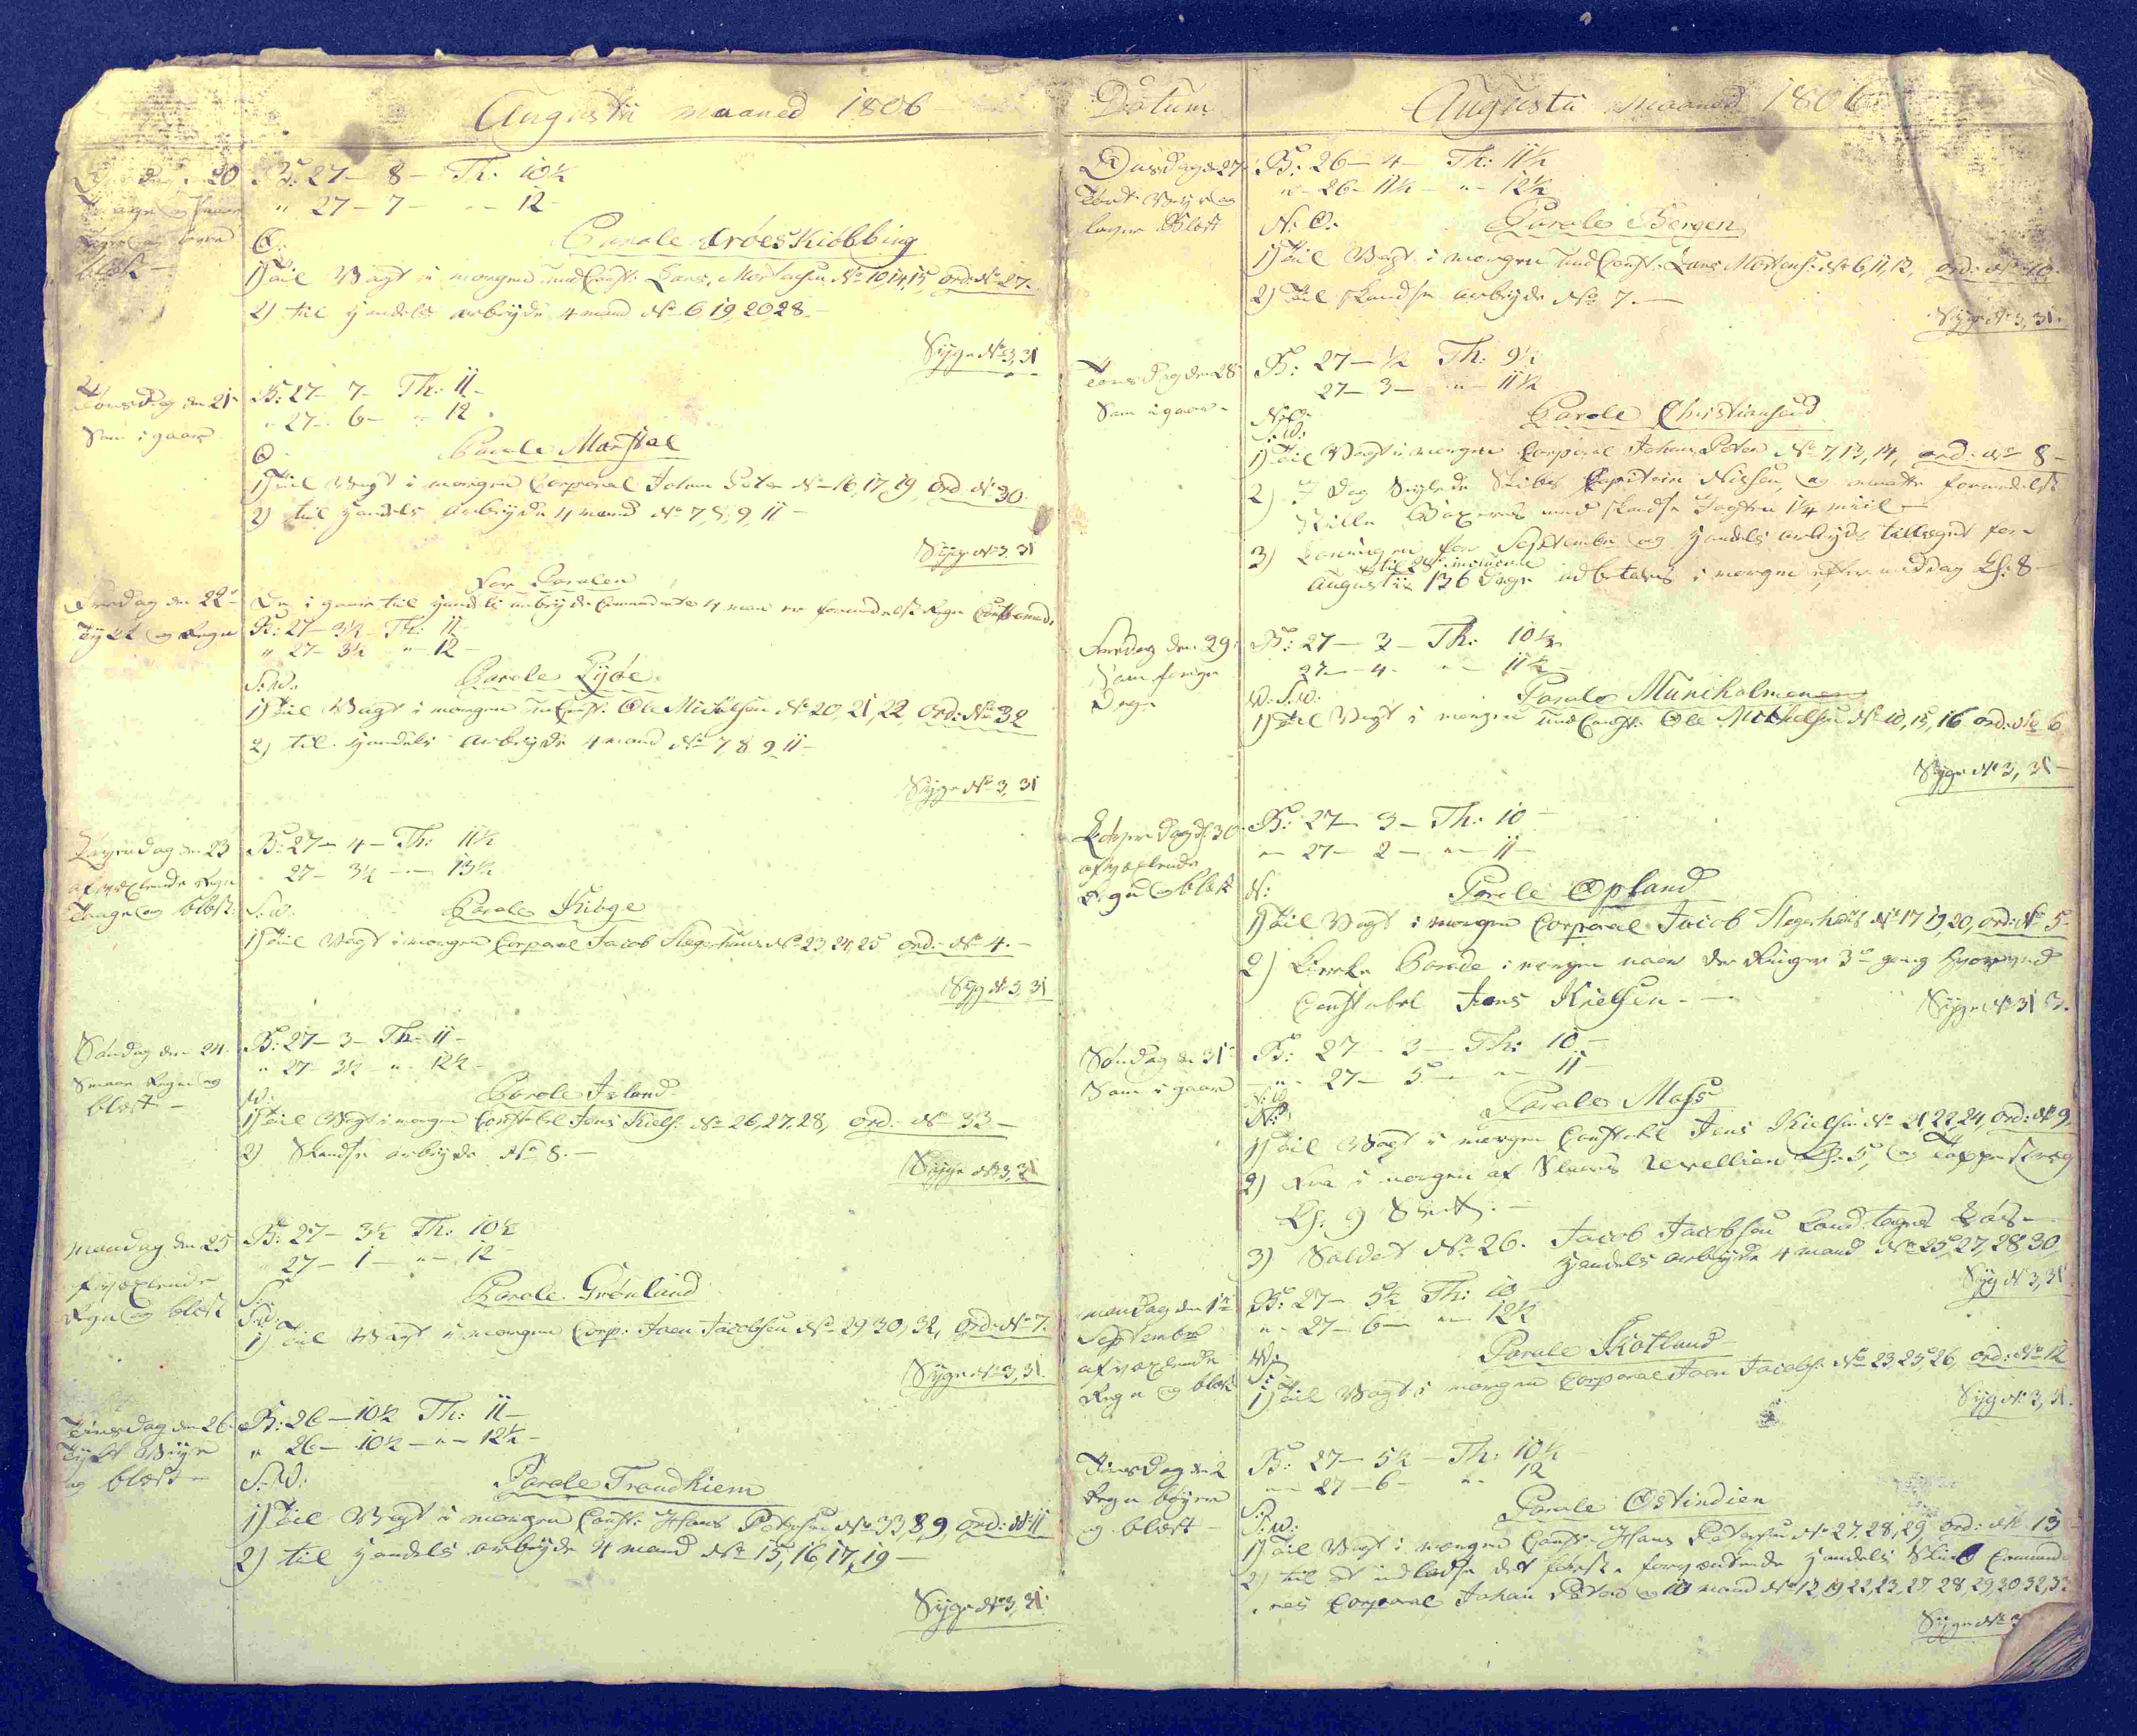 Augustii maaned 1806
Onsdag den 20 B: 27 – 8 – Th: 10½
Taage og
" 27 – 7 – " – 12 –
blæst –
O: Parole Ærøeskiøbbing
1) Til Vagt i morgen Lars Mortensen No 10, 14, 15 ord: No 27.
2) til Handels arbeyde 4 mand No 6 19, 20, 28. –
Syge No 3, 31
Torsdag den 21 B: 27 – 7 – Th: 11 –
Som i gaar " 27 – 6 – " 12
O Parole Marstal
1) Til Vagt i morgen Corporal Johan Peter No 16, 17, 19, Ord No 30.
2) til Handels Arbeyde 4 mand No 7, 8, 9, 11 –
Syge No 3, 31
For Paralen
Fredag den 22 De i gaar til Handels arbeyde Commenderte 4 man er formedelst Regn
Tykt og Regn B: 27 – 3½ – Th: 11 –
" 27 – 3½ – " – 12 –
S:W: Parole Lyøe
1) Til Vagt i morgen Ole Mickelsen No 20, 21, 22 Ord: No 32
2) til Handels Arbeyde 4 mand No 7 8 9 11 –
Syge No 3, 31
Løverdag den 23 B: 27 – 4 – Th: 11½
afvexlende Regn " 27 – 3½ – " – 13½
Taage og blæst S:W: Parole Kiøge
1) Til Vagt i morgen Corporal Jacob Slegerhuus No 23, 24, 25 ord: No 4. –
Syge No 3, 31
Søndag den 24 B: 27 – 3 – Th: 11 –
Smaae Regn og " 27 – 3½ – " – 12½ –
blæst – W: Parole Island
1) Til Vagt i morgen Constabel Jens Kiels: No 26, 27, 28, Ord: No 33 –
2) Skandse arbeyde No 8. –
Syge No 3, 31
Mandag den 25 B: 27 – 3½ Th: 10½
afvexlende " 27 – 1 – " – 12 –
Regn og blæst S: S:O: Parole Grønland
1) Til Vagt i morgen Corp: Joen Jacobsen No 29 30, 32, Ord: No 7.
Syge No 3, 31.
Tiirsdag den 26 B: 26 – 10½ Th: 11 –
Tykt Veyr " 26 – 10½ – " – 12½ –
og blæst – S:W: Parole Trondhiem
1) Til Vagt i morgen Const: Hans Petersen No 33, 8, 9, Ord: No 11
2) til Handels arbeyde 4 mand No 15, 16, 17, 19 –
Syge No 3, 31.
Datum Augustii maaned 1806
Onsdag d: 27 B: 26 – 4 – Th: 11½
Veyr og " – 26 – 11½ – " – 12½
Blæst N:O: Parole Bergen
1) Til Vagt i morgen Lars Mortens: No 6, 11, 12, ord: No 10.
2) Til Skandse arbeyde No 7. –
Syge No 3, 31.
Torsdag den 28 B: 27 – ½ Th: 9½
Som i gaar – 27 – 3 – " – 11½
Parole Christiansand
1) Til Vagt i morgen Corporal Johan Peter No 7, 13, 14, ord: No 8 –
2) I Dag Seylede Skibs Capitain Nielsen, og maatte formedelst
Stille Boxeres med Skandse Jagten 1¼ miil –
3) Løningen for September og Handels arbeyde tillægget for
til 28de inclusive
Augustii 136 Dage udbetales i morgen efter middag Kl: 8 –
Fredag den 29 B: 27 – 2 – Th: 10½
Som forige 27 – 4 – " – 11½
Dage W:S:W: Parole Munkholmen
1) Til Vagt i morgen Ole Mikkelsen No 10, 15, 16 ord: No 6
Syge No 3, 31 –
Løverdag d: 30 B: 27 – 3 – Th: 10 –
afvexlende " – 27 – 2 – " – 11 –
Regn og blæst N: Parole Opland
1) Til Vagt i morgen Corporal Jacob Slegerhuus No 17 19, 20, ord: No 5 –
2) Kirke Parade i morgen naar der Ringer 3de gang
Constabel Jens Kielsen. – Syge No 31 3.
Søndag den 31 B: 27 – 3 – Th: 10 –
Som i gaar – " – 27 – 5 – " – 11 –
Parole Moss
1) Til Vagt i morgen Constabel Jens Kielsen No 21, 22, 24, Ord: No 9
2) Fra i morgen af Slaaes Revellien Kl: 5, og Tappenstreg
Kl: 9 Slet. –
3) Soldat No 26. Jacob Jacobsen
Handels arbeyde 4 mand No 25, 27, 28, 30
Syg No 3, 31
Mandag den 1te B: 27 – 5½ Th: 10
September " – 27 – 6 – " – 12½
afvexlende
Regn og blæst Parole Skotland
1) Til Vagt i morgen Corporal Joen Jacobs: No 23 25 26, ord: No 12
Syg No 3, 31.
Tiirsdag den 2 B: 27 – 5½ – Th: 10½
Regn bøyer " – 27 – 6 – " – 12
og blæst – S: S:W: Parole Ostindien
1) Til Vagt i morgen Const: Hans Petersen No 27, 28, 29 ord: No 13
2) til at indladse det første forventende Handels Skib Commande-
res Corporal Johan Peter og 10 mand No 12, 19, 22, 23, 27, 28, 29, 30, 32, 33
Syge No 3